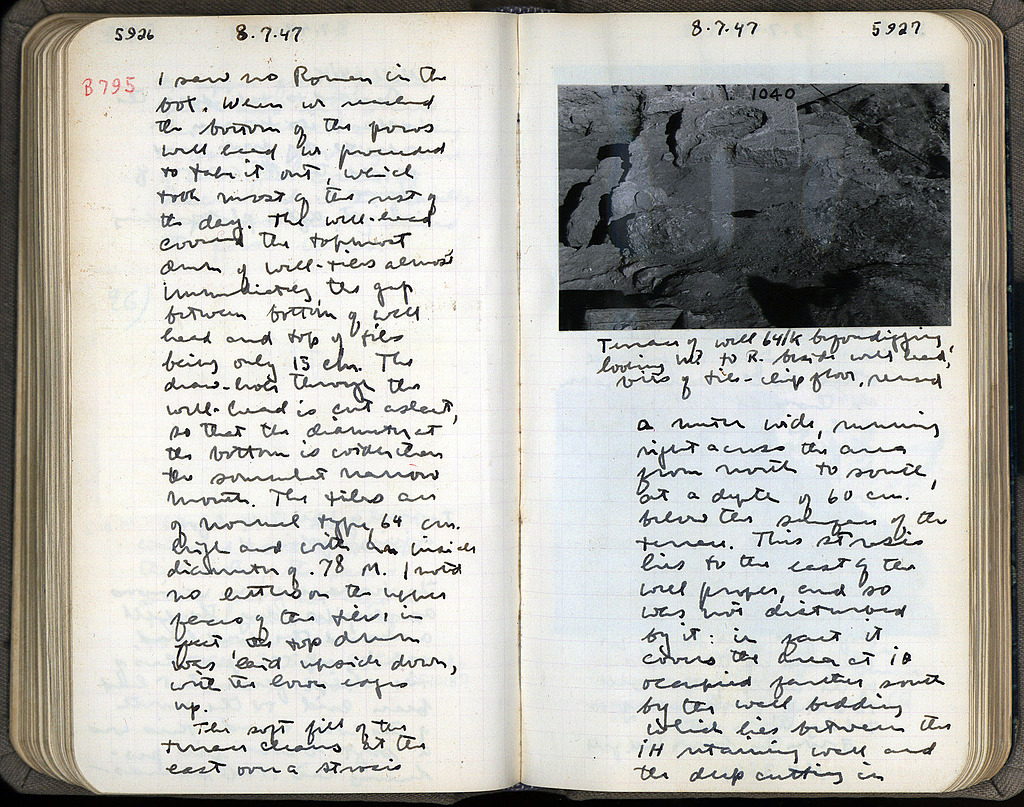 5926
8.7.47
B795
I saw no Roman in the
bot. When we reached
the bottom of the poros
well head we proceeded
to take it out, which
took most of the rest of
the day. The well-head
covered the topmost
drum of well-tiles almost
immediately, the gap
between bottom of well
head and top of tiles
being only 15 cm. The
draw-hole through the
well-head is cut aslant,
so that the diameter at
the bottom is wider than
the somewhat narrow
mouth. The tiles are
of normal type, 64 cm.
high and with an inside
diameter of .78 M. I noted
no letters on the upper
faces of the tiles: in
fact, the top drum
was laid upside down,
with the lower edges
up.
The soft fill of the
terrace cleans at the
east over a strosis
8.7.47
5927
1040
Terrace of well 64/K before digging,
looking W? to R. beside well head,
bits of tile-chip floor, reused
a meter wide, running
right across the area
from north to south,
at a depth of 60 cm.
below the surface of the
terrace. This strosis
lies to the east of the
well proper, and so
was not disturbed
by it: in fact it
covers the area at iΘ
occupied farther south
by the wall bedding
which lies between the
iH retaining wall and
the deep cutting in